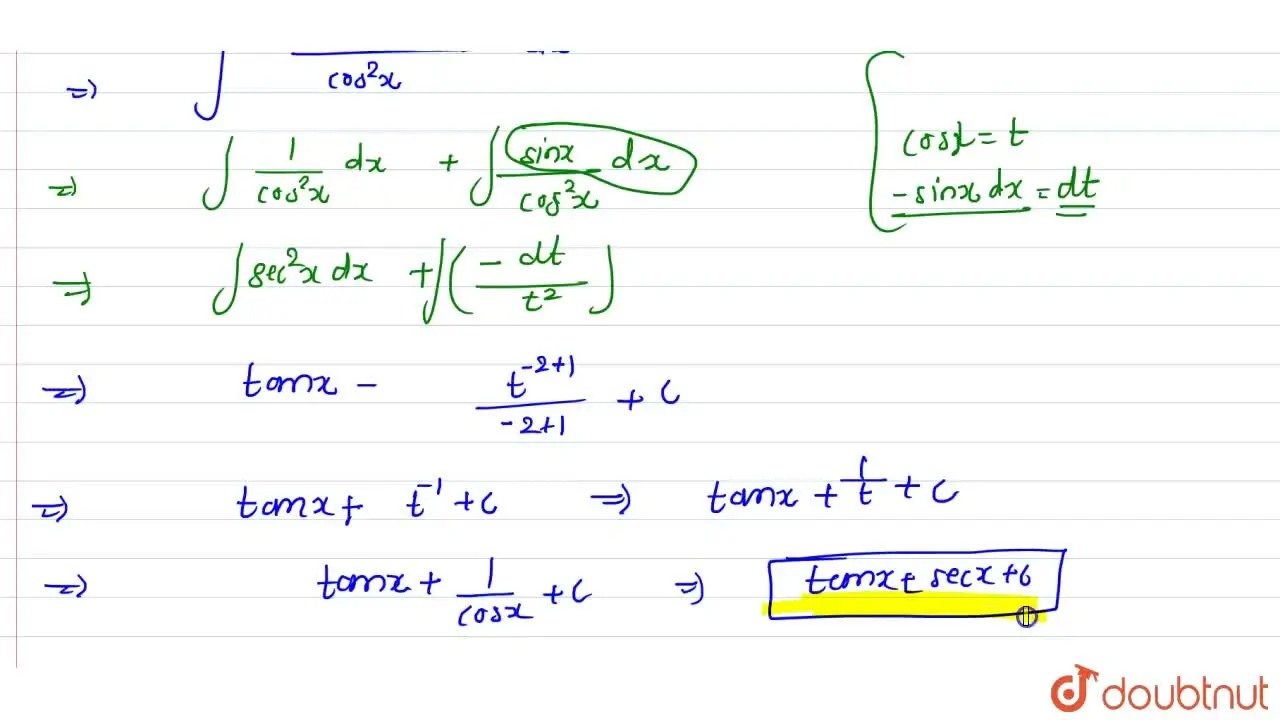 ⇒ ∫ ――― cos²x
⇒ ∫ 1/cos²x dx + ∫ sinx/cos²x dx
cosx = t
-sinx dx = dt
⇒ ∫ sec²x dx + ∫ (-dt/t²)
⇒ tanx - t^(-2+1)/(-2+1) + c
⇒ tanx + t⁻¹ + c ⇒ tanx + 1/t + c
⇒ tanx + 1/cosx + c ⇒ tanx + secx + c
doubtnut